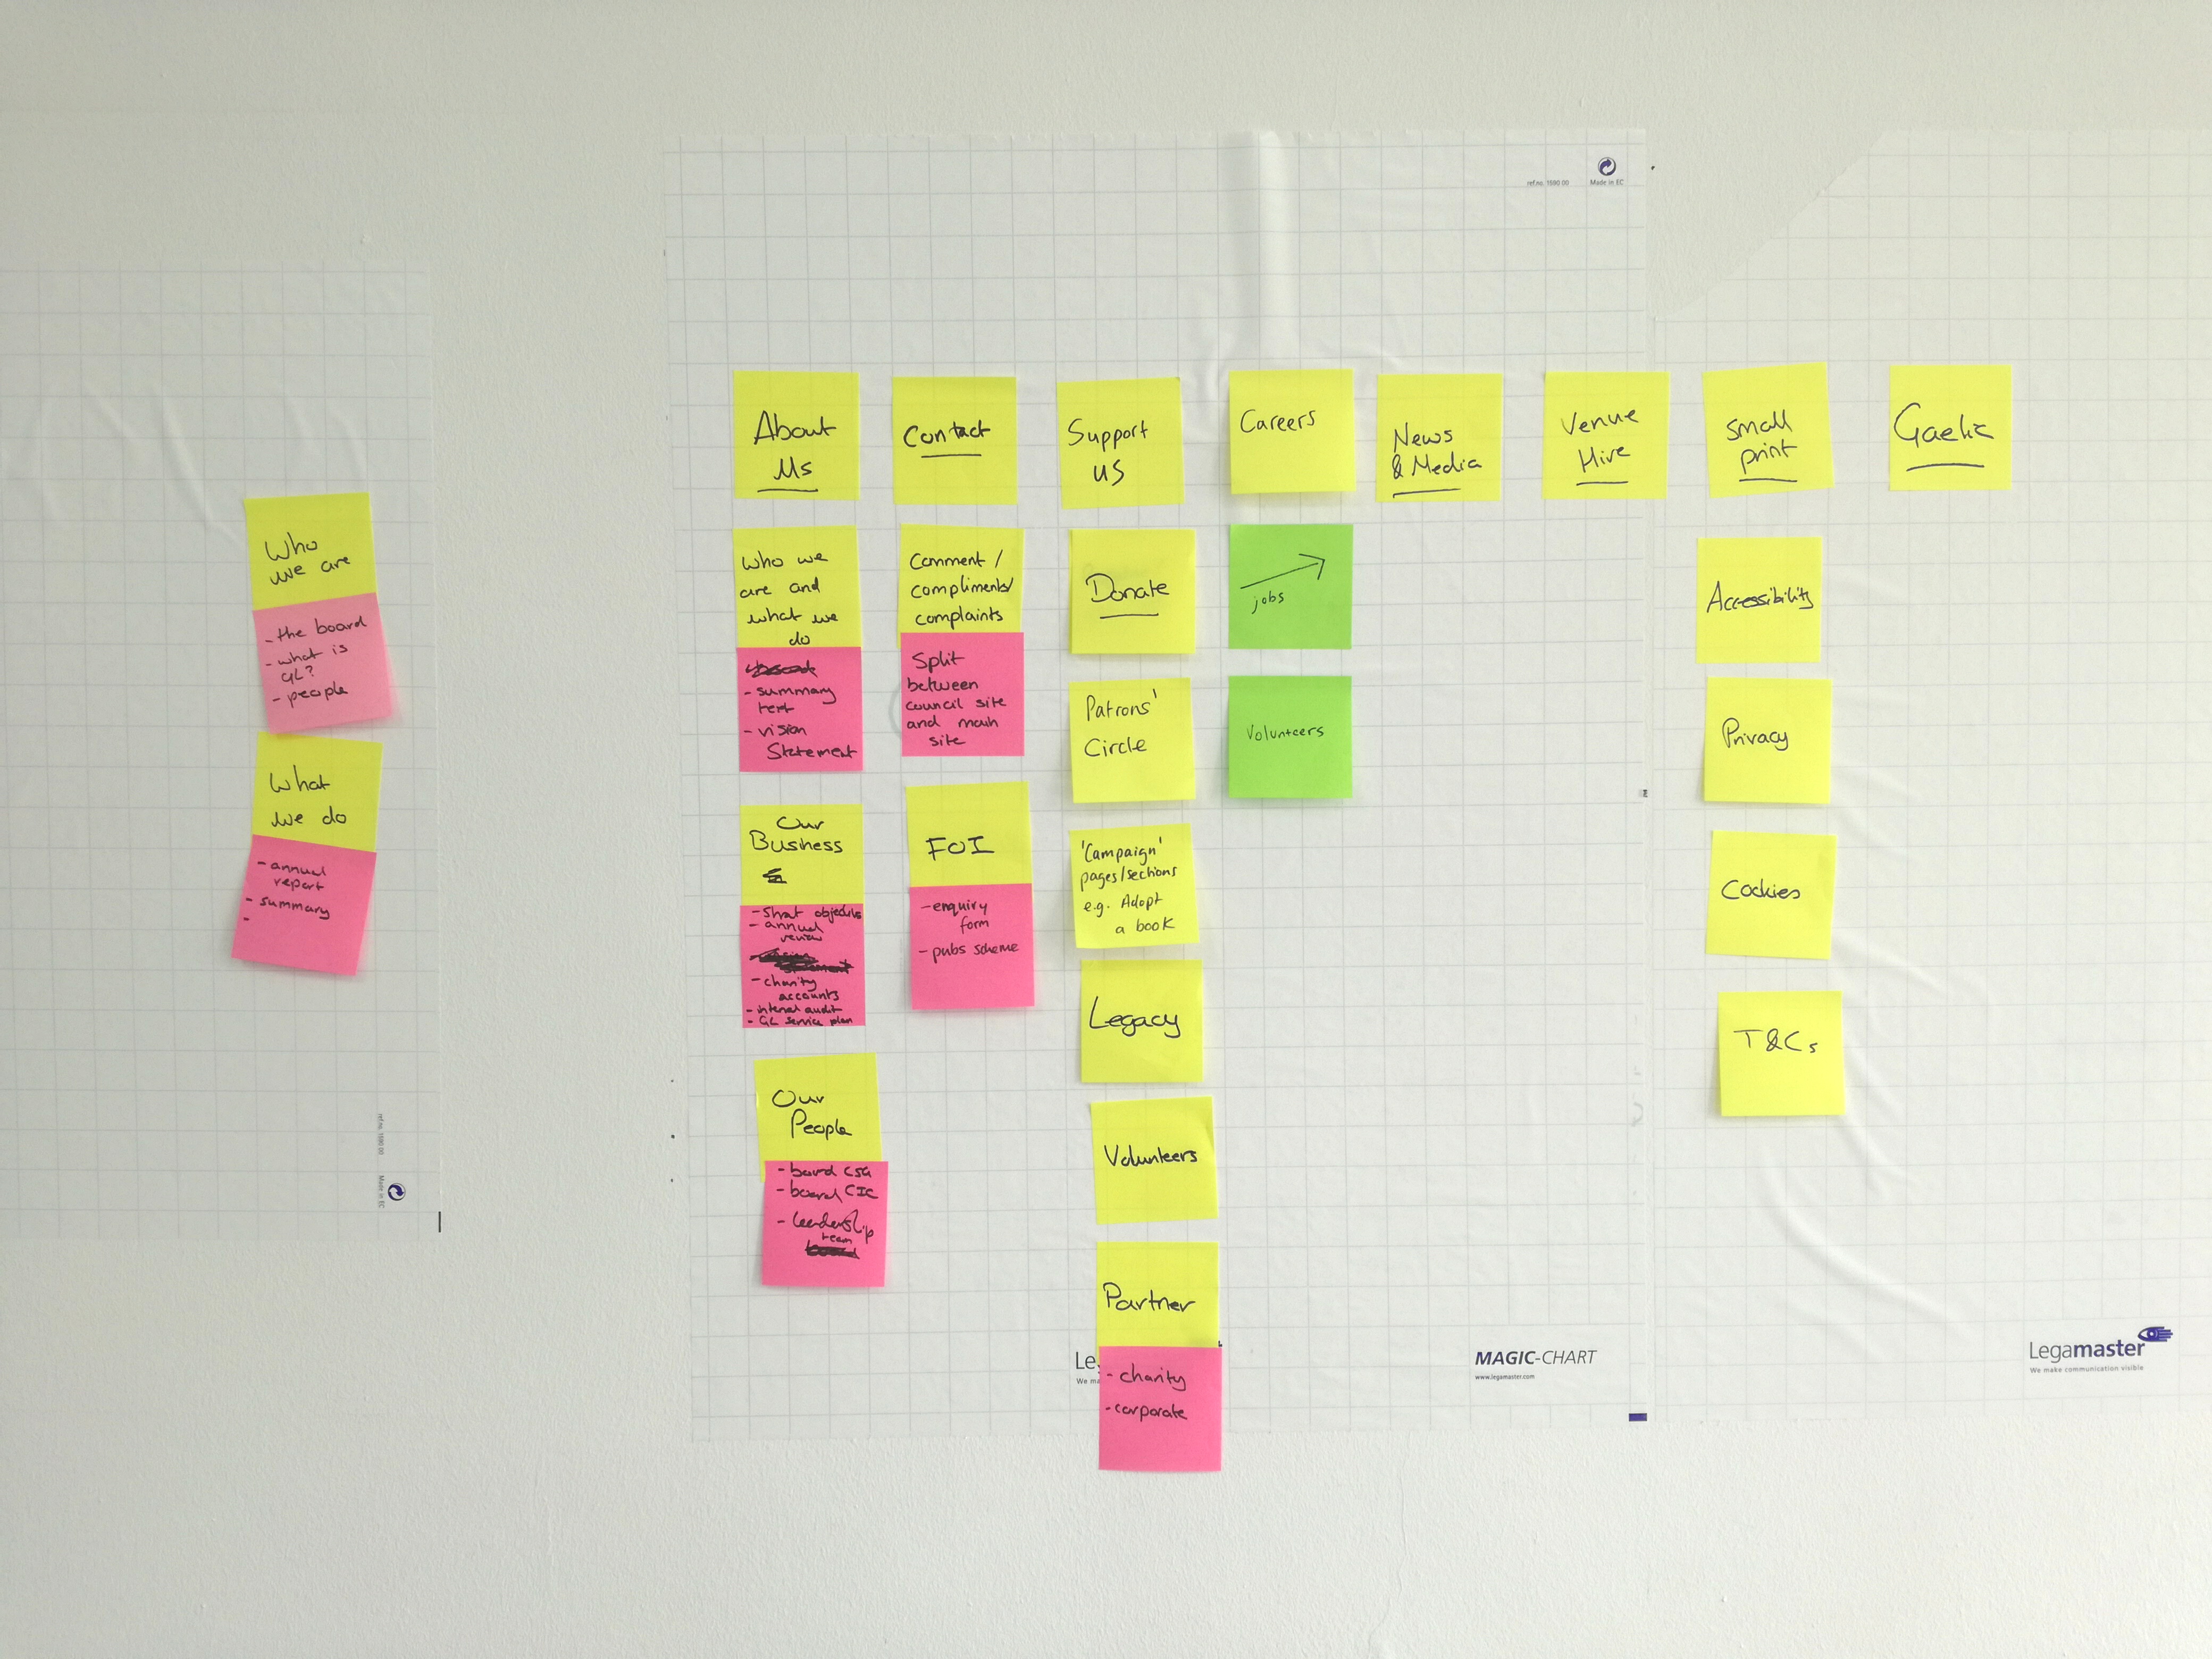 ref.no. 1590 00
Made in EC
Who
we are
- the board
- what is
GL?
- people
What
we do
- annual
report
- summary
-
ref.no. 1590 00
Made in EC
About
Us
Who we
are and
what we
do
- summary
text
- vision
Statement
Our
Business
- Strat objectives
- annual
review
- charity
accounts
- internal audit
- GL service plan
Our
People
- board CSG
- board CIC
- leadership
team
Contact
Comment /
compliments/
complaints
Split
between
council site
and main
site
FOI
- enquiry
form
- pubs scheme
Support
us
Donate
Patrons'
Circle
'Campaign'
pages/sections
e.g. Adopt
a book
Legacy
Volunteers
Partner
- charity
- corporate
Careers
jobs
Volunteers
News
& Media
Venue
Hire
Small
print
Accessibility
Privacy
Cookies
T&Cs
Gaelic
Le
We ma
MAGIC-CHART
www.legamaster.com
Legamaster
We make communication visible